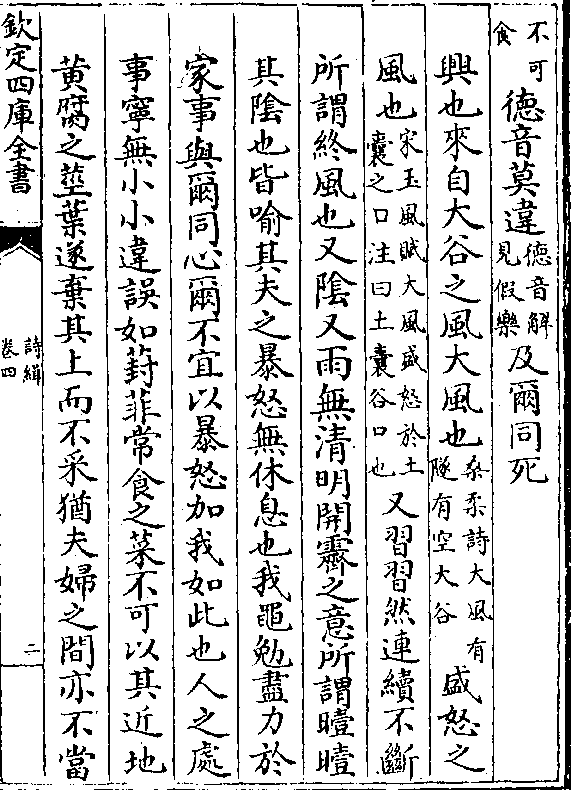 不可食德音莫違德音解見假樂及爾同死
興也來自大谷之風大風也桑柔詩大風有隧有空大谷盛怒之
風也宋玉風賦大風盛怒於土囊之口注曰土囊谷口也又習習然連續不斷
所謂終風也又陰又雨無清明開霽之意所謂曀曀
其陰也皆喻其夫之暴怒無休息也我黽勉盡力於
家事與爾同心爾不宜以暴怒加我如此也人之處
事寧無小小違誤如葑菲常食之菜不可以其近地
黄腐之莖葉遂棄其上而不采猶夫婦之間亦不當
欽定四庫全書
詩緝
卷四
二